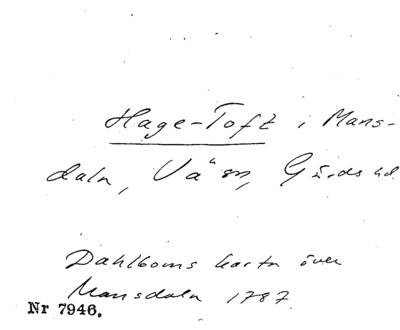 Hage-Toft i Mans-
daln, Vä sn, Gärds hd.
Dahlboms karta över
Mansdaln 1787.
Nr 7946.